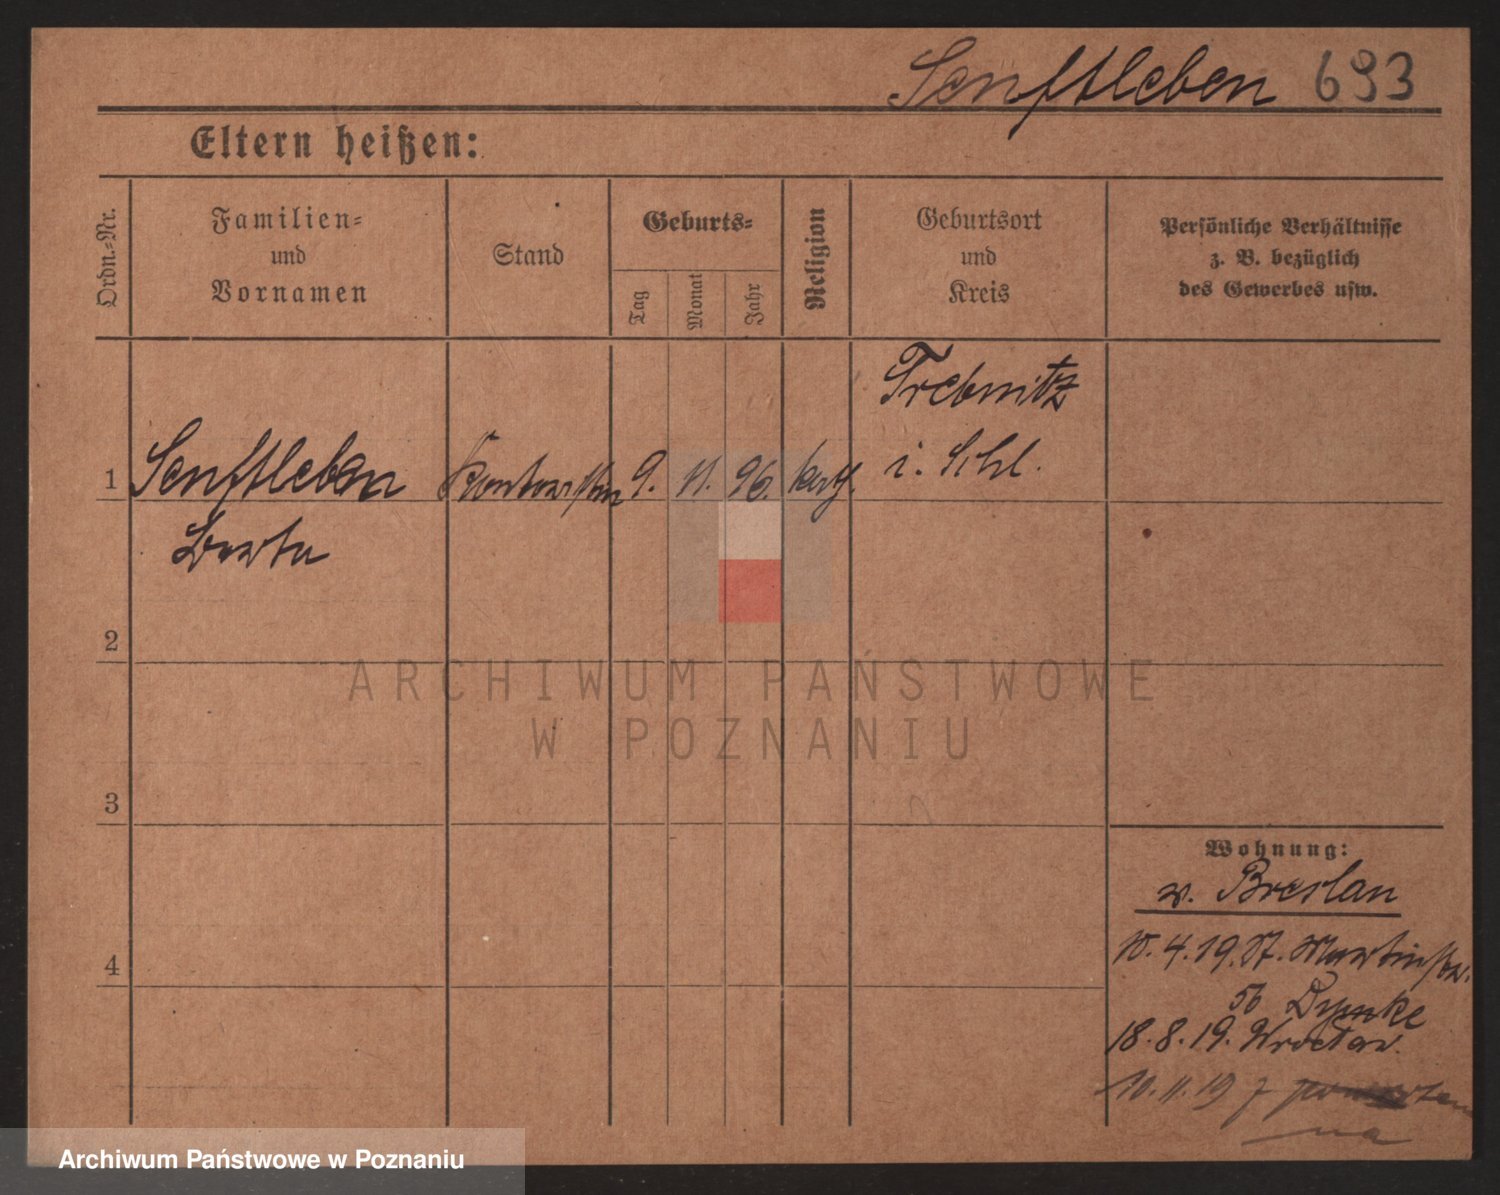 Senftleben 693
Eltern heißen:
Ordn.-Nr.
Familien-
und
Vornamen
Stand
Geburts-
Tag
Monat
Jahr
Religion
Geburtsort
und
Kreis
Persönliche Verhältnisse
z. B. bezüglich
des Gewerbes usw.
1
Senftleben
Berta
Kontoristin
9.
11.
96.
kath.
Trebnitz
i. Schl.
2
3
4
ARCHIWUM PAŃSTWOWE
W POZNANIU
Wohnung:
v. Breslau
10.4.19. St. Martinstr.
56 Dymke
18.8.19. Wrocław.
10.11.19
Archiwum Państwowe w Poznaniu